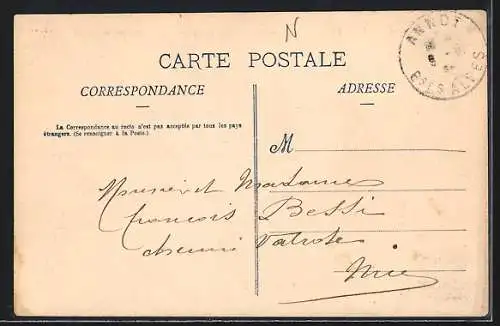 N
CARTE POSTALE
ANNOT
BSES ALPES
CORRESPONDANCE
ADRESSE
La Correspondance au recto n'est pas acceptée par tous les pays
étrangers. (Se renseigner à la Poste.)
M
Monsieur et Madame
François Bessi
chemin Valrose
Nice